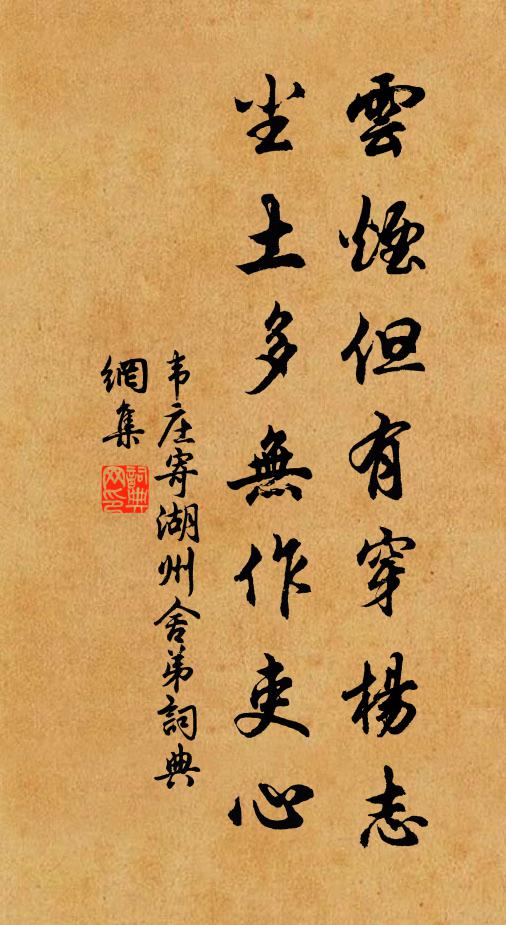 雲煙但有穿楊志
尘土多無作吏心
韦庄寄湖州舍弟詞典
網集
詞典
网印